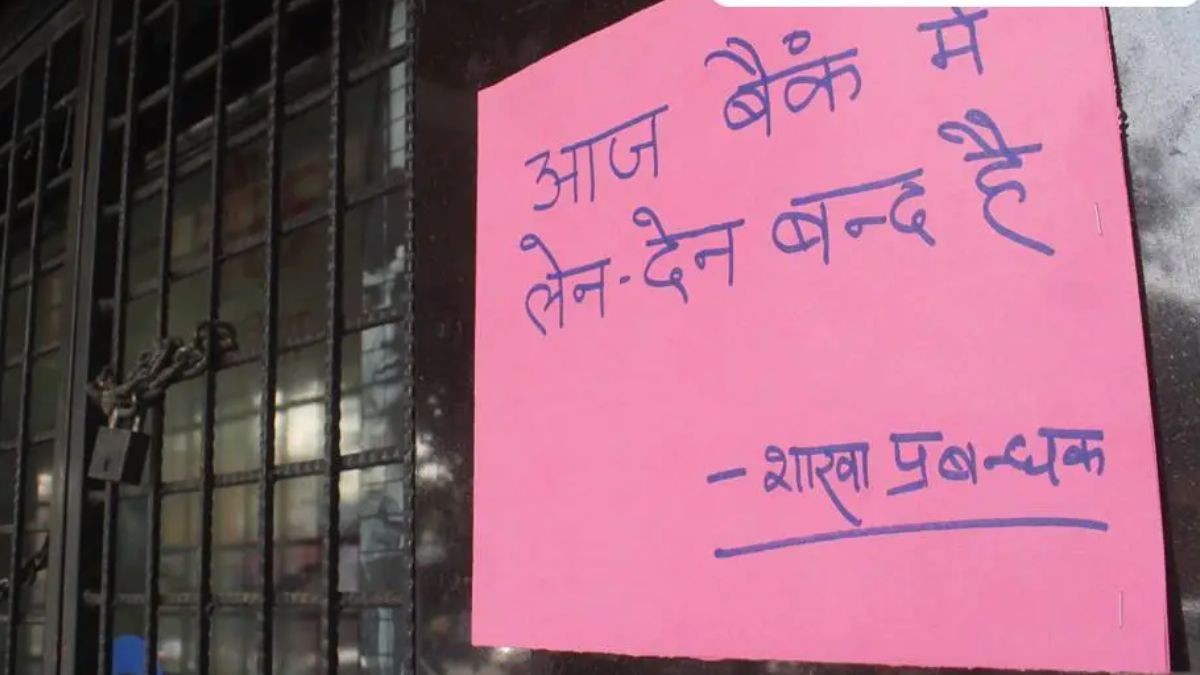 आज बैंक में
लेन-देन बन्द है
- शाखा प्रबन्धक